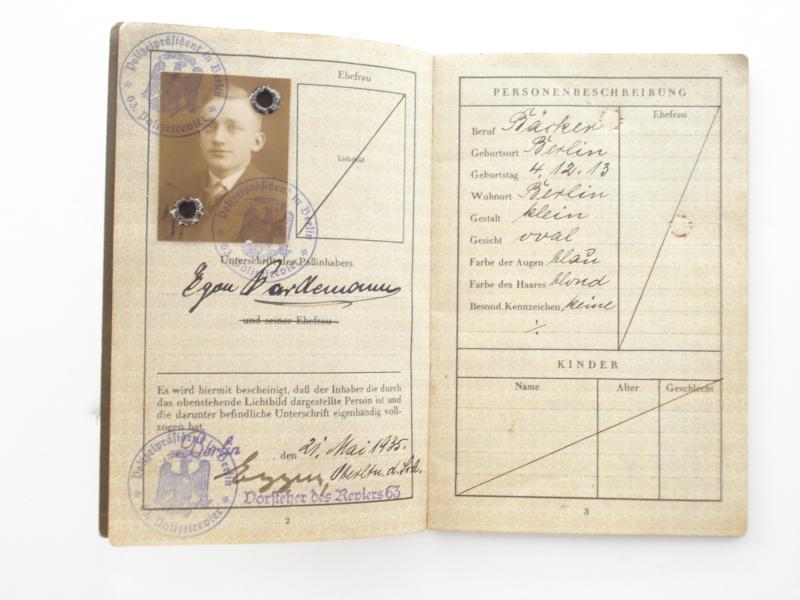 Polizeipräsident in Berlin
63. Polizeirevier
Ehefrau
Lichtbild
Polizeipräsident in Berlin
63. Polizeirevier
Unterschrift des Paßinhabers
Egon
und seiner Ehefrau
Es wird hiermit bescheinigt, daß der Inhaber die durch
das obenstehende Lichtbild dargestellte Person ist und
die darunter befindliche Unterschrift eigenhändig voll-
zogen hat.
Berlin, den 21. Mai 1935.
Polizeipräsident in Berlin
63. Polizeirevier
Oberltn. d. Sch.
Vorsteher des Reviers 63
2
PERSONENBESCHREIBUNG
Ehefrau
Beruf Bäcker
Geburtsort Berlin
Geburtstag 4. 12. 13
Wohnort Berlin
Gestalt klein
Gesicht oval
Farbe der Augen blau
Farbe des Haares blond
Besond. Kennzeichen keine
KINDER
Name Alter Geschlecht
3